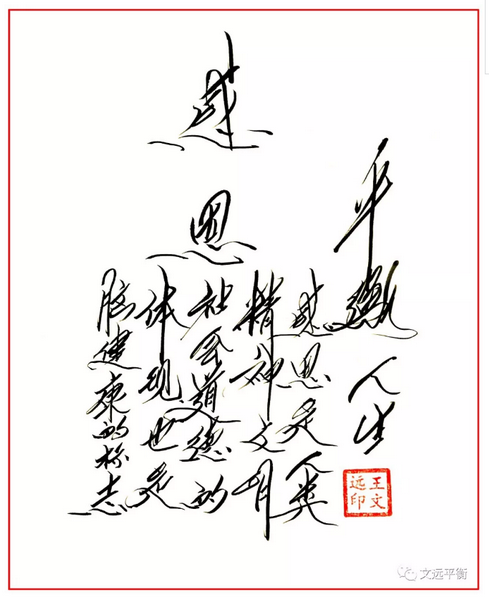 感恩
平衡人生
感恩是人类
精神文明
社会道德的
体现也是
脑健康的标志
王文
远印
文远平衡